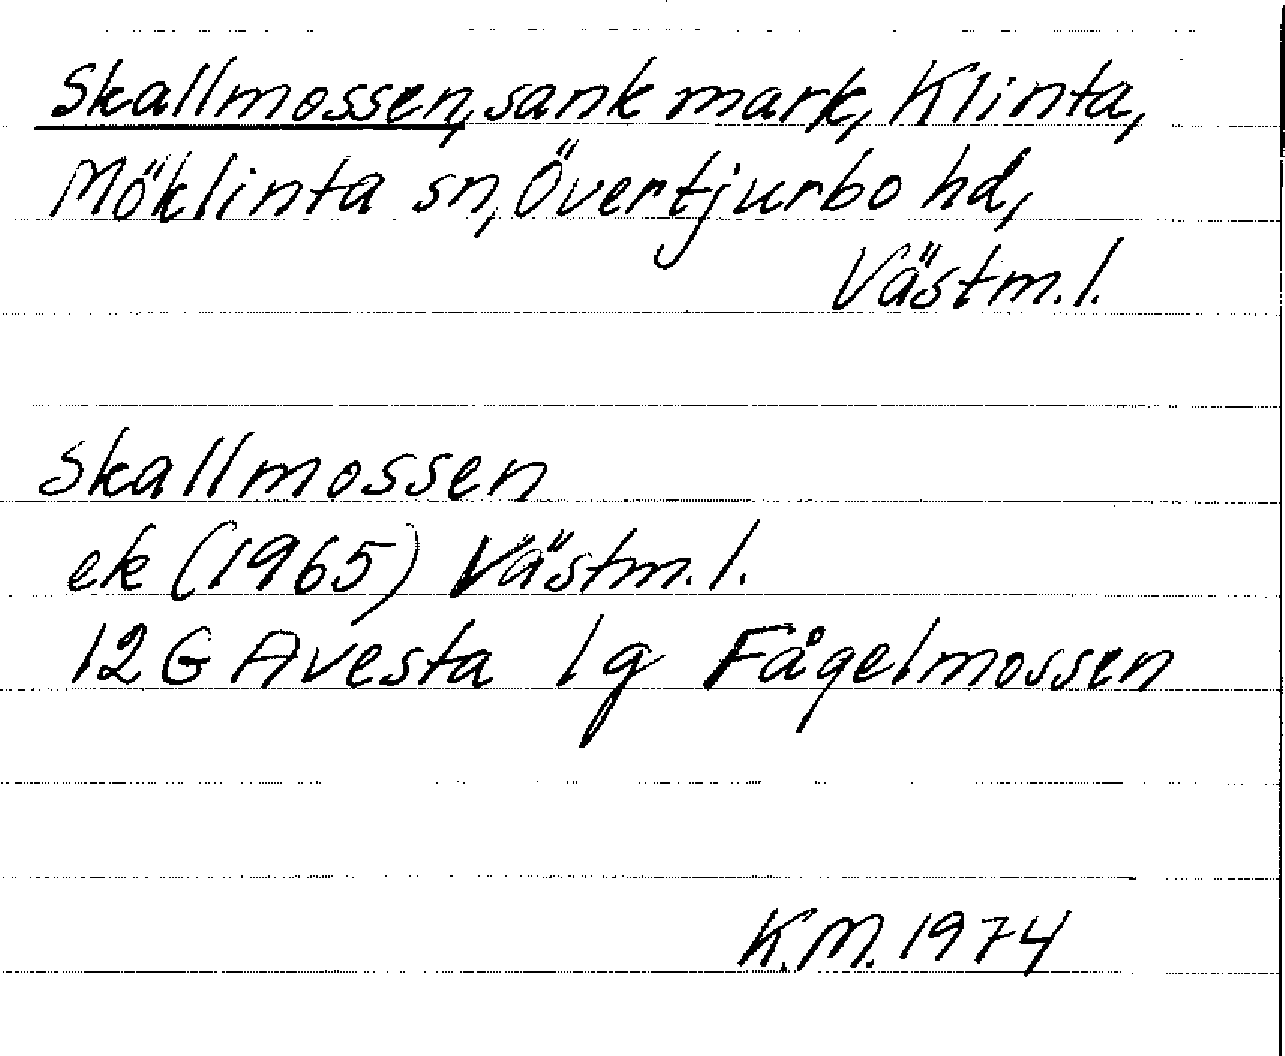 Skallmossen, sank mark, Klinta,
Möklinta sn, Övertjurbo hd,
Västm.l.
Skallmossen
ek (1965) Västm.l.
12 G Avesta 1g Fågelmossen
K.M. 1974